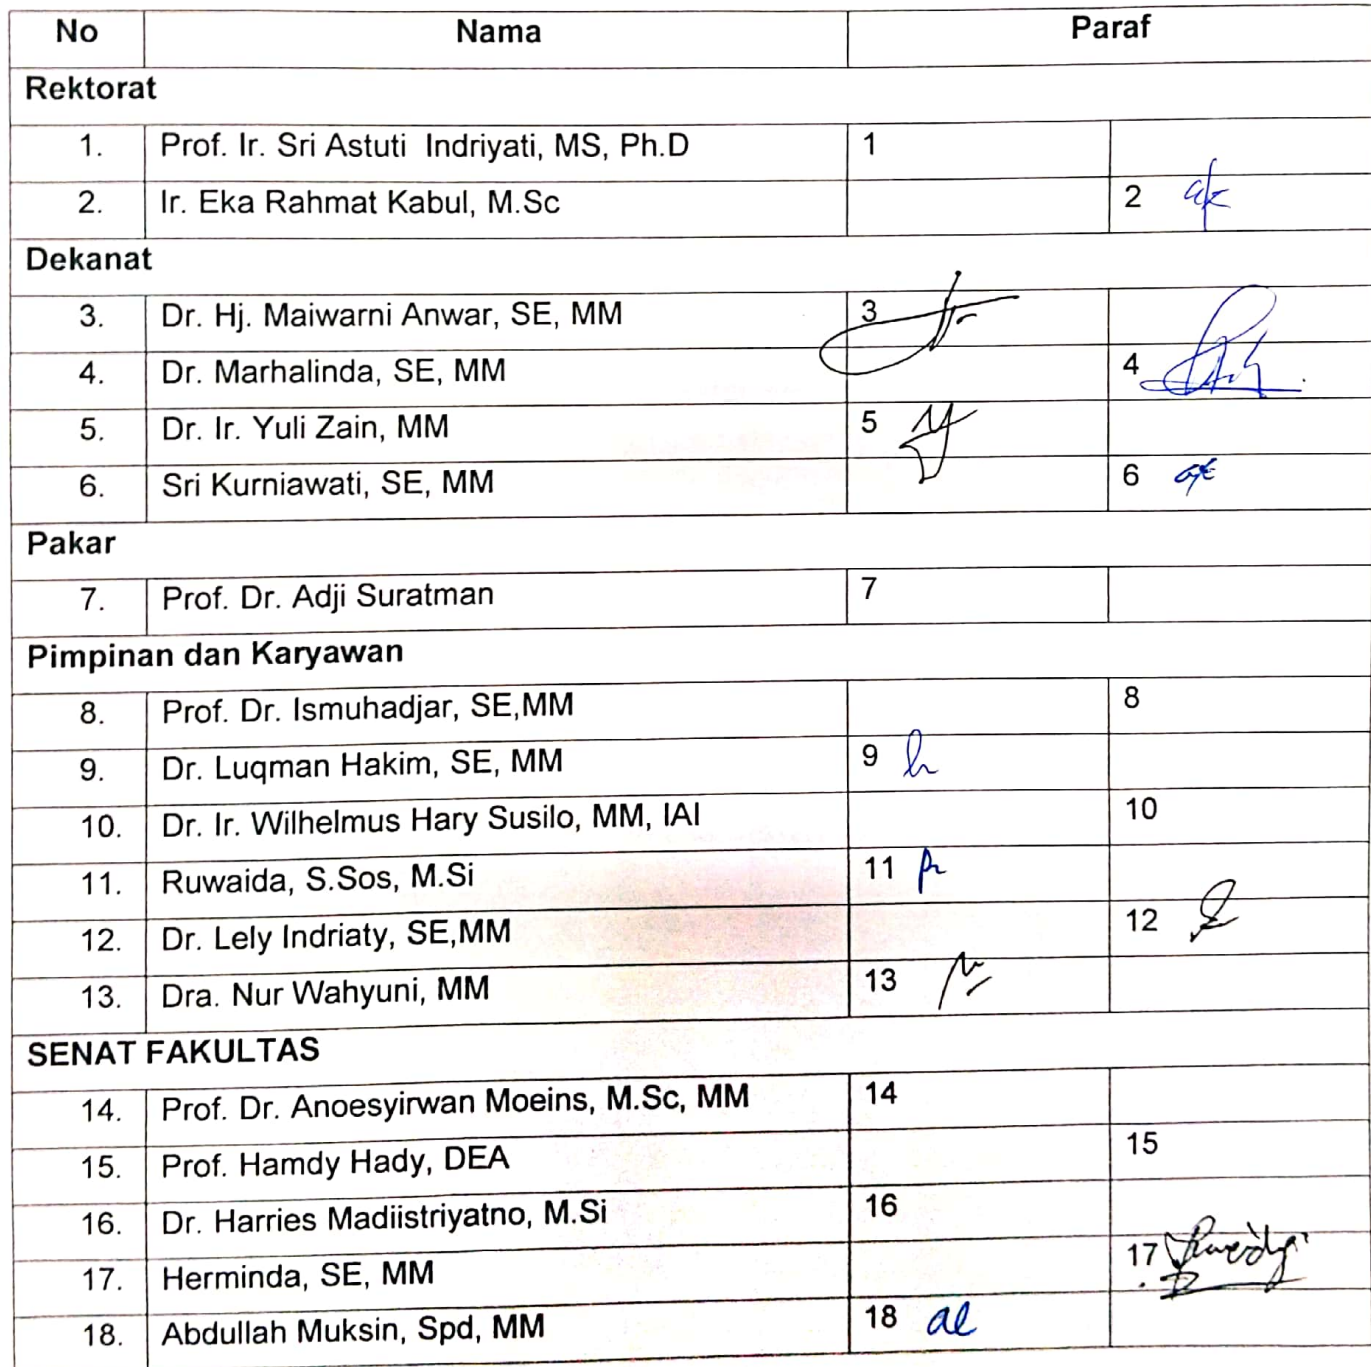 No Nama Paraf
Rektorat
1. Prof. Ir. Sri Astuti Indriyati, MS, Ph.D 1
2. Ir. Eka Rahmat Kabul, M.Sc 2
Dekanat
3. Dr. Hj. Maiwarni Anwar, SE, MM 3
4. Dr. Marhalinda, SE, MM 4
5. Dr. Ir. Yuli Zain, MM 5
6. Sri Kurniawati, SE, MM 6
Pakar
7. Prof. Dr. Adji Suratman 7
Pimpinan dan Karyawan
8. Prof. Dr. Ismuhadjar, SE,MM 8
9. Dr. Luqman Hakim, SE, MM 9
10. Dr. Ir. Wilhelmus Hary Susilo, MM, IAI 10
11. Ruwaida, S.Sos, M.Si 11
12. Dr. Lely Indriaty, SE,MM 12
13. Dra. Nur Wahyuni, MM 13
SENAT FAKULTAS
14. Prof. Dr. Anoesyirwan Moeins, M.Sc, MM 14
15. Prof. Hamdy Hady, DEA 15
16. Dr. Harries Madiistriyatno, M.Si 16
17. Herminda, SE, MM 17
18. Abdullah Muksin, Spd, MM 18